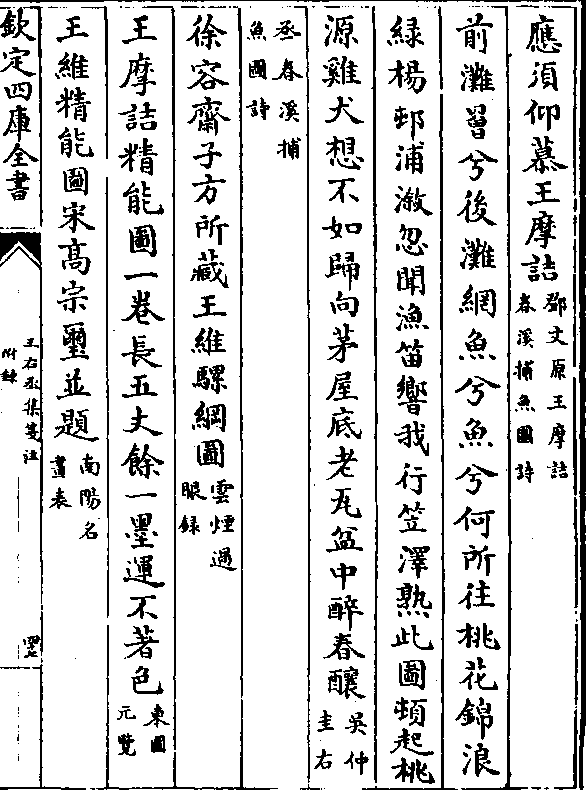 應須仰慕王摩詰鄧文原王摩詰春溪捕魚圖詩
前灘罾兮後灘網魚兮魚兮何所往桃花錦浪
緑楊邨浦溆忽聞漁笛響我行笠澤熟此圖頓起桃
源雞犬想不如歸向茅屋底老瓦盆中醉春釀吳仲圭右
丞春溪捕魚圖詩
徐容齋子方所藏王維騾綱圖雲煙過眼録
王摩詰精能圖一卷長五丈餘一墨運不著色東圖元覽
王維精能圖宋髙宗璽並題南陽名畫表
欽定四庫全書
王右丞集箋注
附録